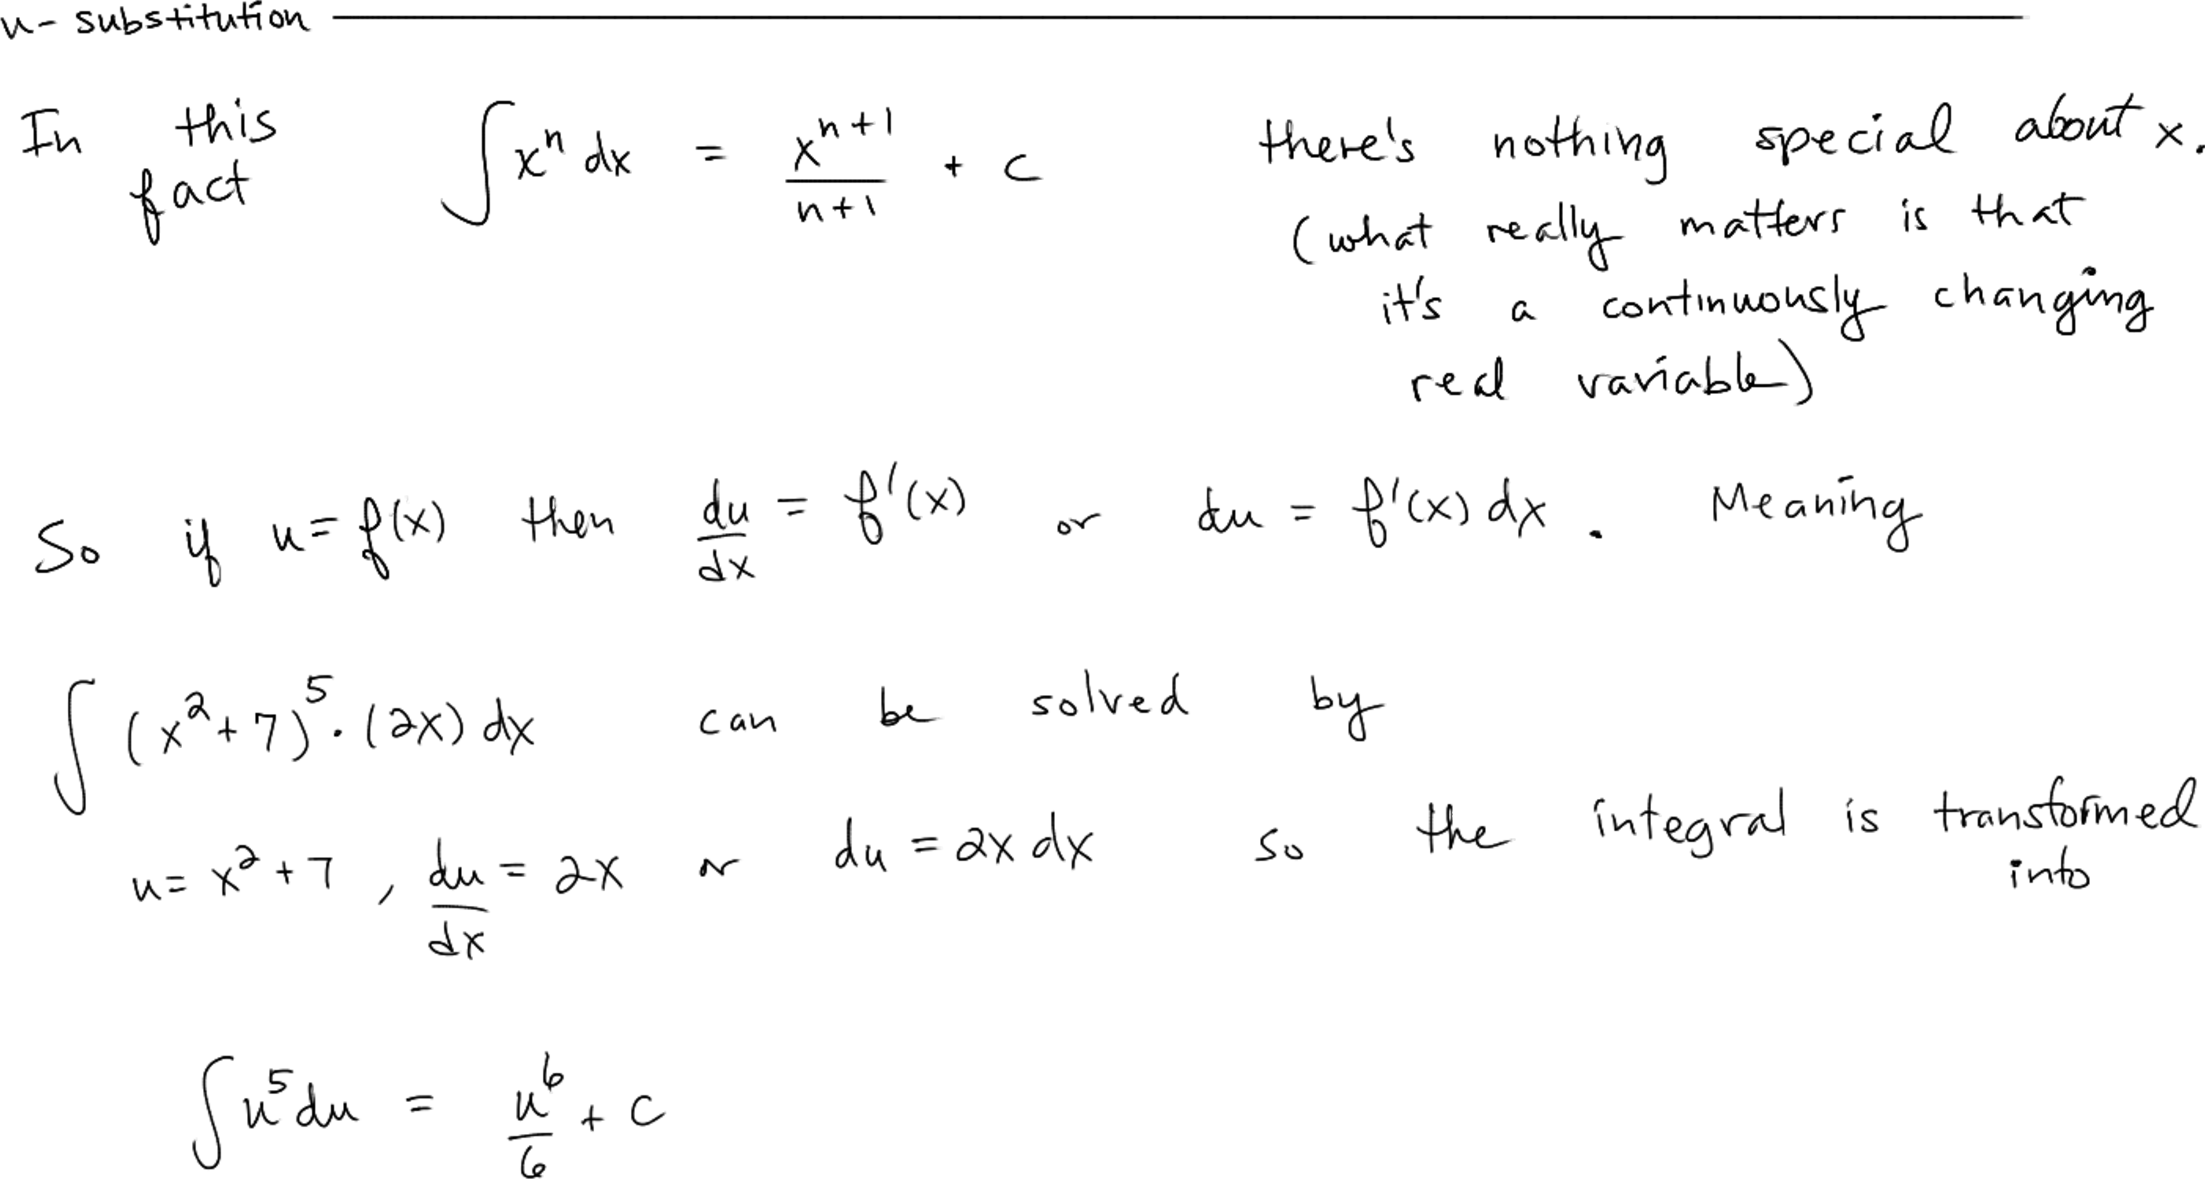 u-substitution
In this fact ∫xⁿ dx = xⁿ⁺¹/(n+1) + c there's nothing special about x.
(what really matters is that
it's a continuously changing
real variable)
So if u = f(x) then du/dx = f'(x) or du = f'(x) dx. Meaning
∫(x²+7)⁵·(2x) dx can be solved by
u = x²+7, du/dx = 2x or du = 2x dx so the integral is transformed into
∫u⁵ du = u⁶/6 + c